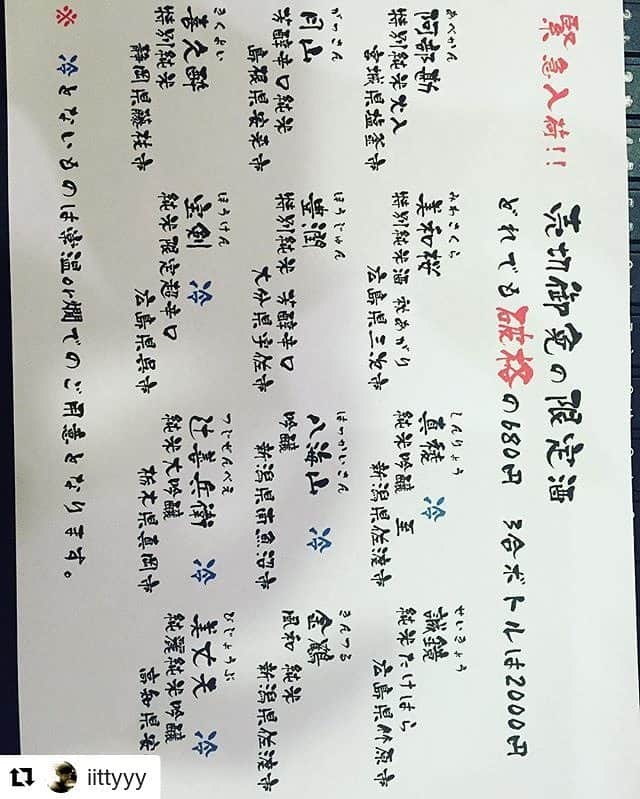 緊急入荷!! 売切御免の限定酒
どれでも破格の680円 3合ボトルは2000円
あべかん
阿部勘
特別純米火入
宮城県塩釜市
みわさくら
美和桜
特別純米酒 秋あがり
広島県三次市
しんりょう
真稜 冷
純米吟醸 至
新潟県佐渡市
せいきょう
誠鏡
純米たけはら
広島県竹原市
がっさん
月山
芳醇辛口純米
島根県安来市
ほうじゅん
豊潤
特別純米 芳醇辛口
大分県宇佐市
はっかいさん
八海山 冷
吟醸
新潟県南魚沼市
きんつる
金鶴
風和 純米
新潟県佐渡市
きくよい
喜久酔
特別純米
静岡県藤枝市
ほうけん
宝剣 冷
純米限定超辛口
広島県呉市
つじぜんべえ
辻善兵衛 冷
純米大吟醸
栃木県真岡市
びじょうふ
美丈夫 冷
純麗純米吟醸
高知県安
※ 冷とないものは常温or燗でのご用意となります。
iittyyy